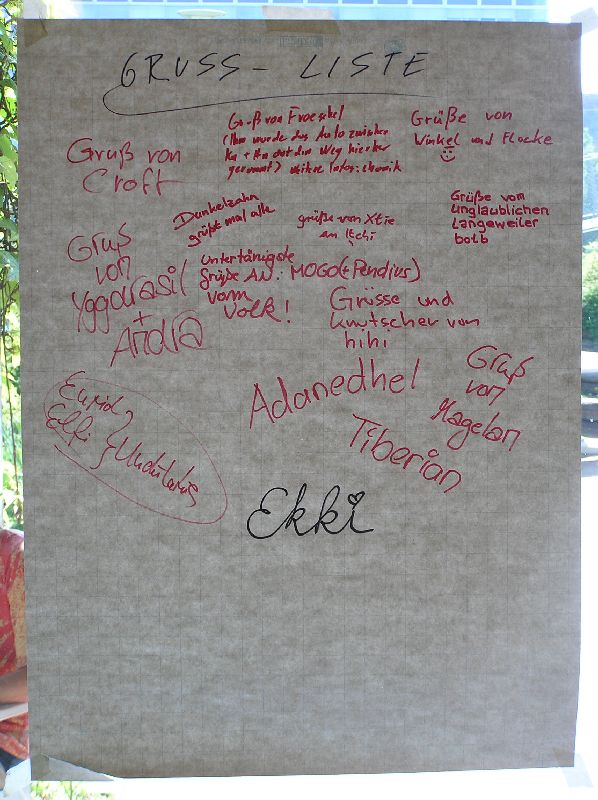 GRUSS - LISTE
Gruß von
Croft
Gruß von Froeschel
(Ihm wurde das Auto zwischen
Ka + Ma auf dem Weg hierher
gerammt) weitere Infos:
Grüße von
Winkel und Flocke
Dunkelzahn
grüßt mal alle
grüße von Xtie
an Itchi
Grüße vom
unglaublichen
Langeweiler
bobb
Gruß
von
Yggdrasil
+
Andra
Untertänigste
Grüße AN: MOGO(+Pendius)
vorm
Volk!
Grüsse und
knutscher von
hihi
Adanedhel
Gruß
von
Magelan
Tiberian
Ekki